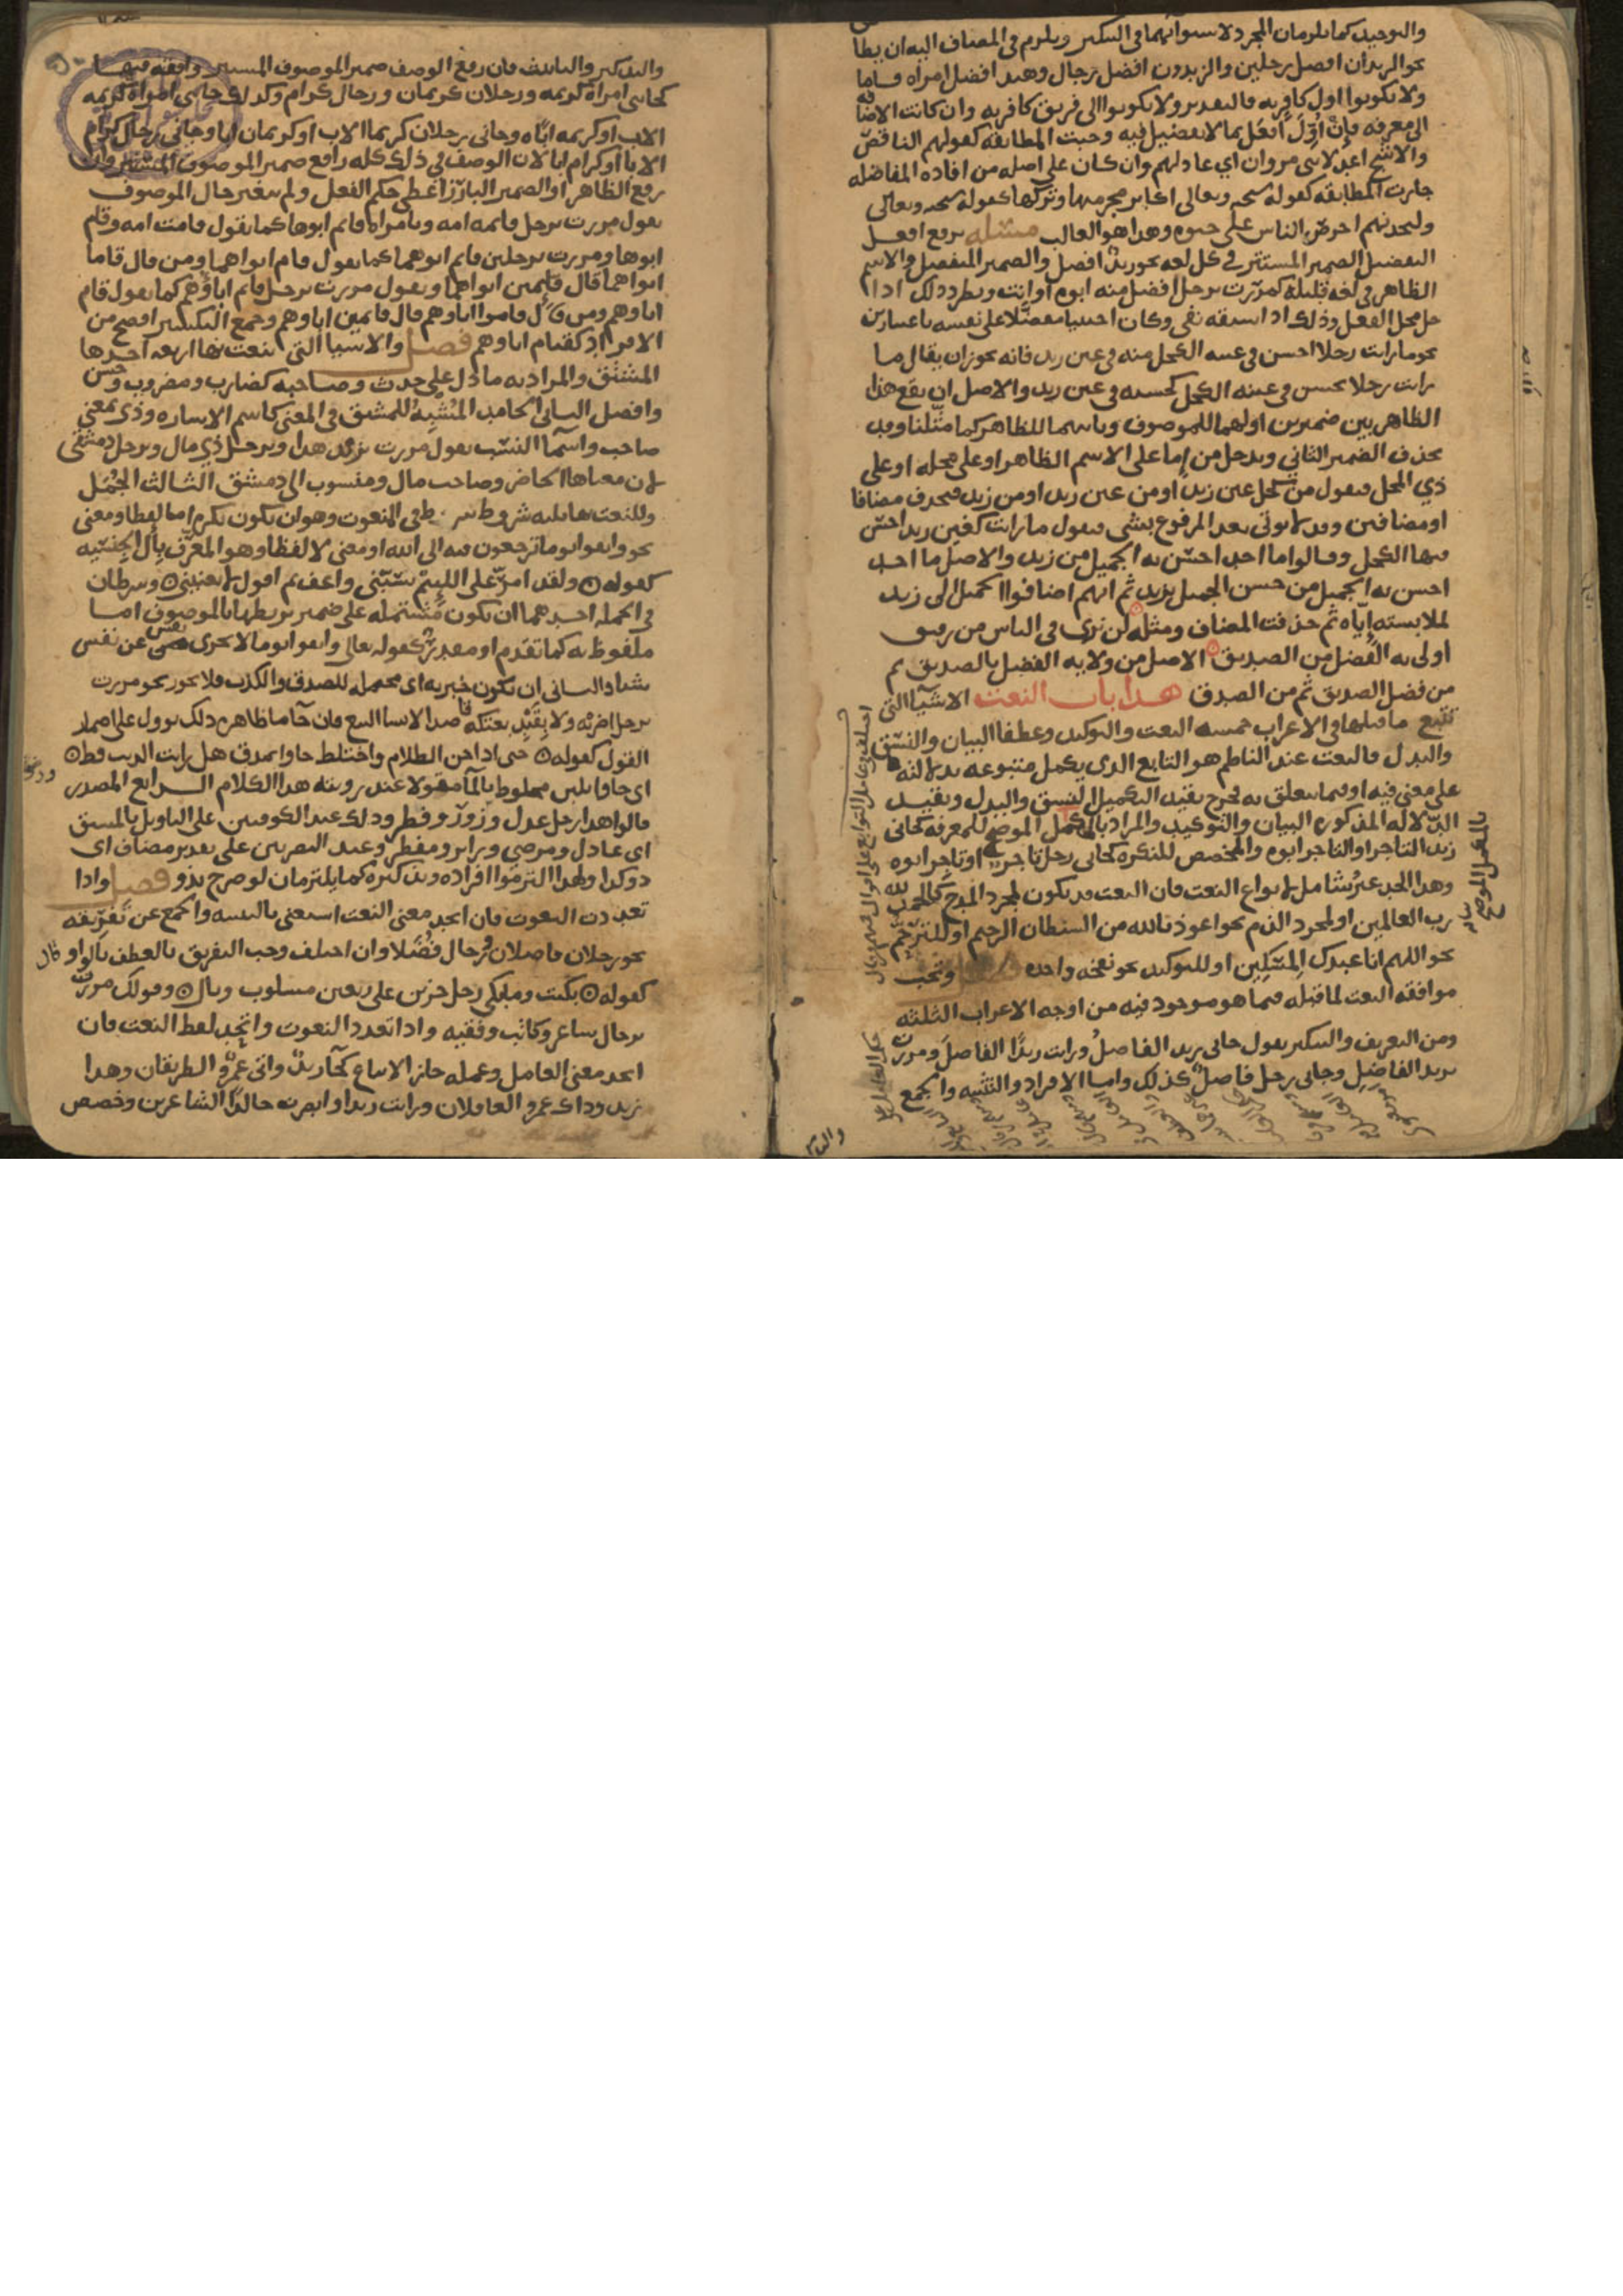 والتوحيد كما يلزمان المجرد لاستوائهما في التنكير ويلزم في المضاف اليه ان يطابق
نحو الزيدان افضل رجلين والزيدون افضل رجال وهند افضل امراة فاما
ولا تكونوا اول كافر به فالتقدير ولا تكونوا اول فريق كافر به وان كانت الاضافه
الى معرفه فإن أُوِّلَ أفعل بما لا تفضيل فيه وجبت المطابقه كقولهم الناقص
والاشج اعدلا بني مروان اي عادلاهم وان كان على اصله من افاده المفاضله
جازت المطابقه كقوله سبحنه وتعالى اكابر مجرميها وتركها كقوله سبحنه وتعالى
ولتجدنهم احرص الناس على حيوه وهذا هو الغالب مسئله يرفع افعل
التفضيل الضمير المستتر في كل لغه نحو زيد افضل والضمير المنفصل والاسم
الظاهر في لغه قليلة كمررت برجل افضل منه ابوه او انت ويطرد ذلك اذا
حل محل الفعل وذلك اذا سبقه نفي وكان اجنبيا مفضلا على نفسه باعتبارين
نحو ما رايت رجلا احسن في عينه الكحل منه في عين زيد فانه يجوز ان يقال ما
رايت رجلا يحسن في عينه الكحل كحسنه في عين زيد والاصل ان يقع هذا
الظاهر بين ضميرين اولهما للموصوف وثانيهما للظاهر كما مثلنا وقد
يحذف الضمير الثاني وتدخل من إما على الاسم الظاهر او على محله او على
ذي المحل فتقول من كحل عين زيد او من عين زيد او من زيد فتحذف مضافا
او مضافين وقد لا يوتى بعد المرفوع بشي فتقول ما رايت كعين زيد احسن
فيها الكحل وقالوا ما احد احسن به الجميل من زيد والاصل ما احد
احسن به الجميل من حسن الجميل بزيد ثم انهم اضافوا الجميل الى زيد
لملابسته إياه ثم حذفت المضاف ومثله لن ترى في الناس من رفيق
اولى به الفضل من الصديق الاصل من ولايه الفضل بالصديق ثم
من فضل الصديق ثم من الصديق هذا باب النعت الاشيا التي
تتبع ما قبلها في الاعراب خمسه النعت والتوكيد وعطفا البيان والنسق
والبدل فالنعت عند الناظم هو التابع الذي يكمل متبوعه بدلالته
على معنى فيه او فيما يتعلق به يخرج بقيد التكميل النسق والبدل وبقيد
الدلاله المذكوره البيان والتوكيد والمراد بالمكمل الموضح للمعرفه كجاني
زيد التاجر او التاجر ابوه والمخصص للنكره كجاني رجل تاجر او تاجر ابوه
وهذا الحد غير شامل لانواع النعت فان النعت قد يكون لمجرد المدح كالحمد لله
رب العالمين او لمجرد الذم نحو اعوذ بالله من الشيطان الرجيم او للترحم
نحو اللهم انا عبدك المسكين او للتوكيد نحو نفخه واحده فصل وتجب
موافقه النعت لما قبله فيما هو موجود فيه من اوجه الاعراب الثلثه
ومن التعريف والتنكير تقول جاني زيد الفاضلُ ورايت زيدًا الفاضلَ ومررت
بزيد الفاضلِ وجاني رجل فاضل كذلك واما الافراد والتثنيه والجمع
والتذكير والتانيث فان رفع الوصف ضمير الموصوف المستتر وافقه فيها
كجاتني امراة كريمه ورجلان كريمان ورجال كرام وكذلك جاتني امراة كريمه
الاب او كريمه ابًا وجاني رجلان كريما الاب او كريمان ابا وجاني رجال كرام
الابا او كرام ابا لان الوصف في ذلك كله رافع ضمير الموصوف المستتر وان
رفع الظاهر او الضمير البارز اعطي حكم الفعل ولم يعتبر حال الموصوف
تقول مررت برجل قائمه امه وبامراة قائم ابوها كما تقول قامت امه وقام
ابوها ومررت برجلين قائم ابوهما كما تقول قام ابواهما ومن قال قاما
ابواهما قال قائمين ابواهما وتقول مررت برجال قائم اباؤهم كما تقول قام
اباوهم ومن قال قاموا اباوهم قال قائمين اباوهم وجمع التكسير افصح من
الافراد كقيام اباوهم فصل والاشيا التي ينعت بها اربعه احدها
المشتق والمراد به ما دل على حدث وصاحبه كضارب ومضروب وحسن
وافضل الثاني الجامد المُشْبِهُ للمشتق في المعنى كاسم الاشاره وذي بمعنى
صاحب واسما النسب تقول مررت بزيد هذا وبرجل ذي مال وبرجل دمشقي
لان معناها الحاضر وصاحب مال ومنسوب الى دمشق الثالث الجُمَل
وللنعت بها ثلثه شروط شرط في المنعوت وهو ان يكون نكره إما لفظا ومعنى
نحو واتقوا يوما ترجعون فيه الى الله او معنى لا لفظا وهو المعرّف بال الجنسيه
كقوله ولقد امر على اللئيم يسبّني واعف ثم اقول لا يعنيني وشرطان
في الجمله احدهما ان تكون مشتمله على ضمير يربطها بالموصوف إما
ملفوظ به كما تقدم او مقدر كقوله تعالى واتقوا يوما لا تجزى نفس عن نفس
شيئا والثاني ان تكون خبريه اي محتمله للصدق والكذب فلا يجوز نحو مررت
برجل اضربه ولا بعبد بعتكه قاصدا لانشا البيع فان جا ما ظاهره ذلك يوول على اضمار
القول كقوله حتى اذا جن الظلام واختلط جاوا بمذق هل رايت الذيب قط
اي جاوا بلبن مخلوط بالما مقولا عند رويته هذا الكلام الرابع المصدر
قالوا هذا رجل عدل وزَوْر وفطر وذلك عند الكوفيين على التاويل بالمشتق
اي عادل ومرضي وزائر ومفطر وعند البصريين على تقدير مضاف اي
ذو كذا ولهذا التزموا افراده وتذكيره كما يلتزمان لو صرح بذو فصل واذا
تعددت النعوت فان اتحد معنى النعت استغنى بالتثنيه والجمع عن تفريقه
نحو رجلان فاضلان ورجال فُضَلا وان اختلف وجب التفريق بالعطف بالواو
كقوله بكيت وما بكى رجل حزين على ربعين مسلوب وبال وقولك مررت
برجال شاعر وكاتب وفقيه واذا تعدد النعوت واتحد لفظ النعت فان
اتحد معنى العامل وعمله جاز الاتباع كجا زيد واتى عمرو الظريفان وهذا
زيد وذاك عمرو العاقلان ورايت زيدا وابصرت خالدًا الشاعرين وخصص